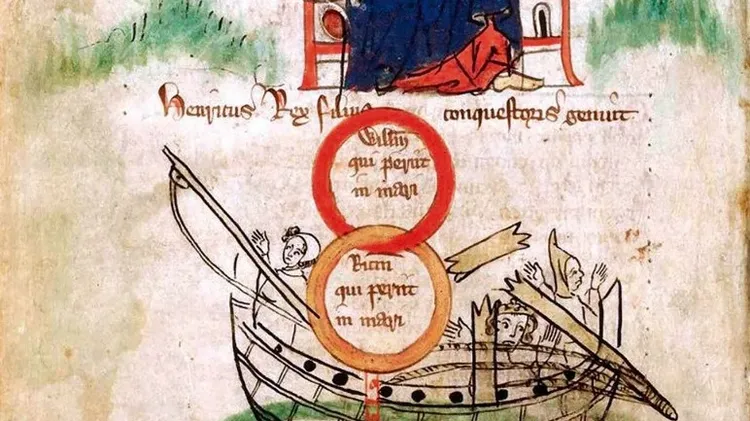 Henricus Rex filius conquestoris genuit
Willm
qui periit
in mari
Ricm
qui periit
in mari